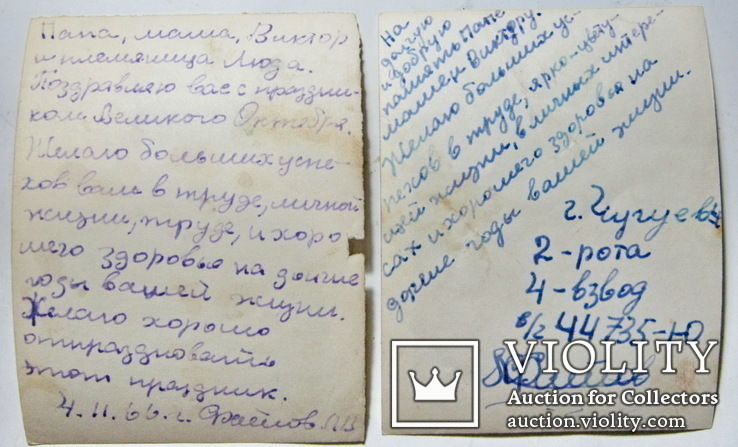 Папа, мама, Виктор
и племяница Люда.
Поздравляю вас с праздни-
ком Великого Октября.
Желаю больших успе-
хов вам в труде, личной
жизни, труде, и хоро
шего здоровья на долгие
годы вашей жизни.
Желаю хорошо
отпраздновать
этот праздник.
4. 11. 66. г.
На
долгую
и добрую
память Папе
маме и Виктору.
Желаю больших ус-
пехов в труде, ярко-цвету-
щей жизни, в личных интере-
сах и хорошего здоровья на
долгие годы вашей жизни.
г. Чугуев
2-рота
4-взвод
в/г 44735-Ю
VIOLITY
Auction for Collectors
auction.violity.com